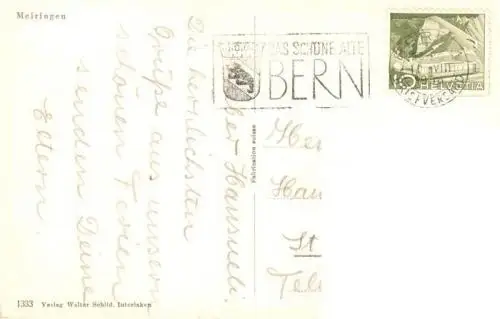 Meiringen
DAS SCHÖNE ALTE
BERN
5 HELVETIA
Die herzlichsten
Grüße aus unsern
schönen Ferien
senden Deine
Eltern.
Her
Hau
St
Tele
Fabrication suisse
1333 Verlag Walter Schild, Interlaken